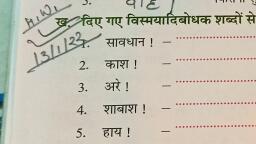 3. वाह !
H.W.
ख. दिए गए विस्मयादिबोधक शब्दों से
13/1/23
1. सावधान ! –
2. काश ! –
3. अरे ! –
4. शाबाश ! –
5. हाय ! –